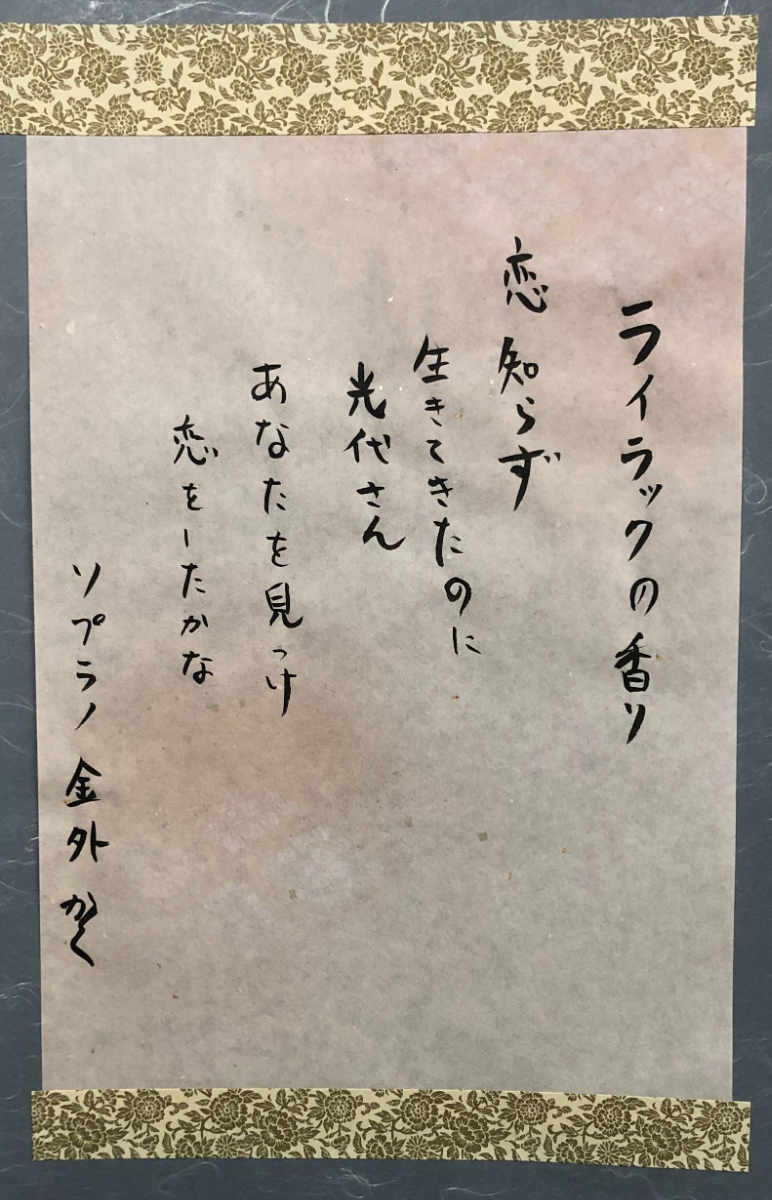 ライラックの香り
恋知らず
生きてきたのに
光代さん
あなたを見つけ
恋をしたかな
ソプラノ 金外 かく